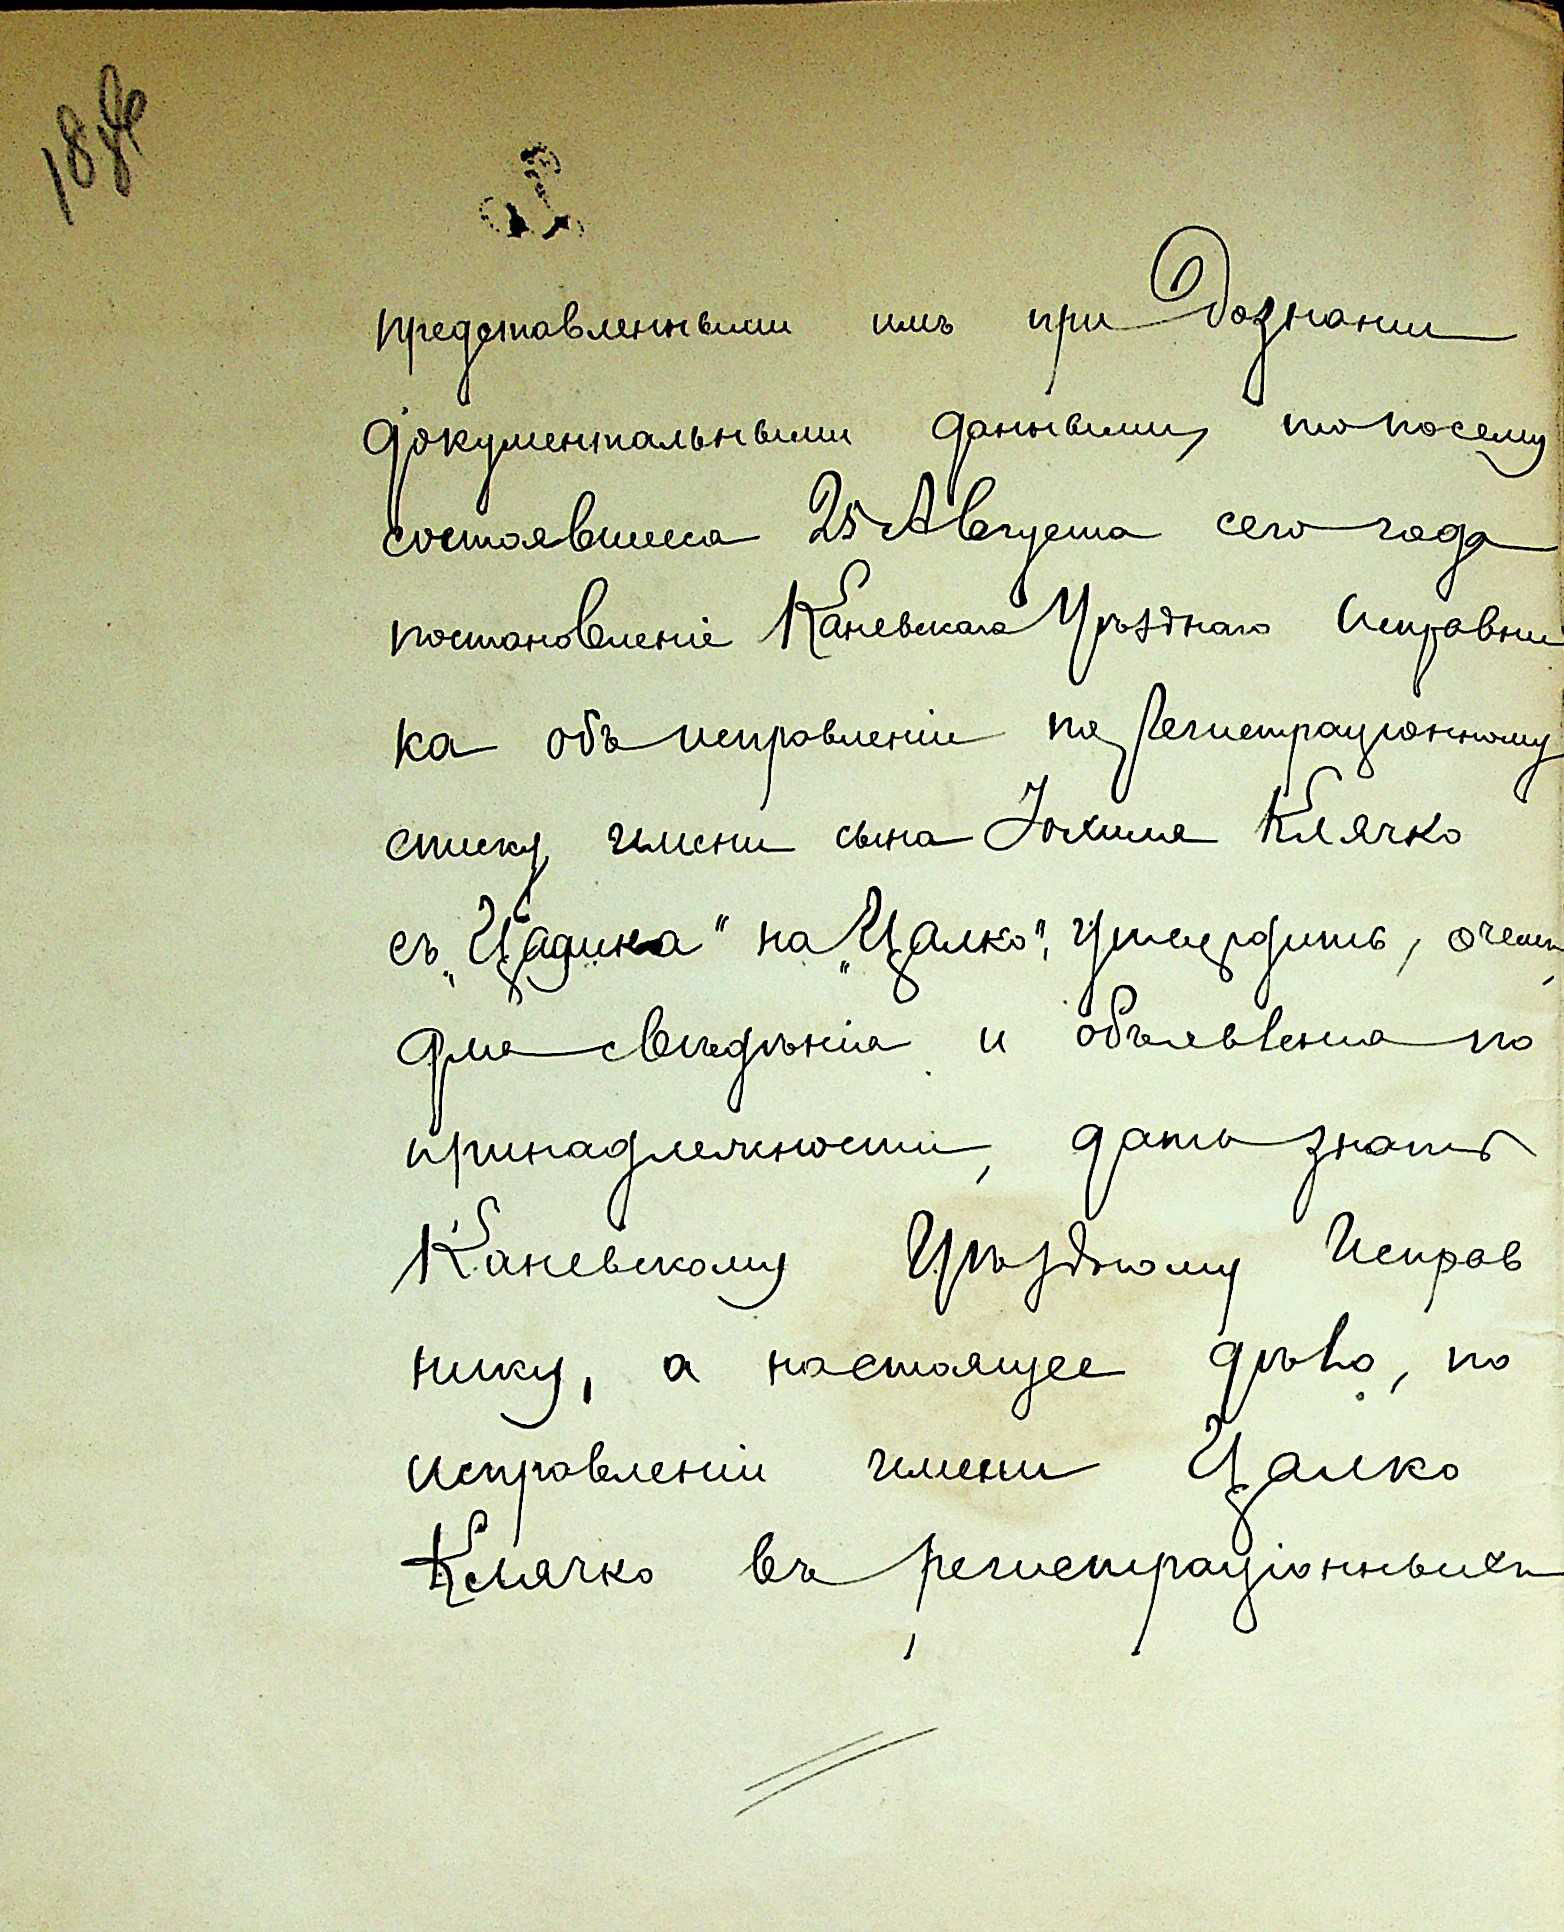 представленными имъ при Дознании
документальными данными, то посему
состоявшееся 25 Августа сего года
постановленіе Каневскаго Уѣзднаго Исправни
ка объ исправленіи по Регистраціонному
списку имени сына Іохима Клячко
съ „Цадика" на „Цалко", утвердить, о чемъ,
для свѣдѣнія и объявления по
принадлежности, дать знать
Каневскому Уѣздному Исправ
нику, а настоящее дѣло, по
исправленіи имени Цалко
Клячко въ регистраціонныхъ